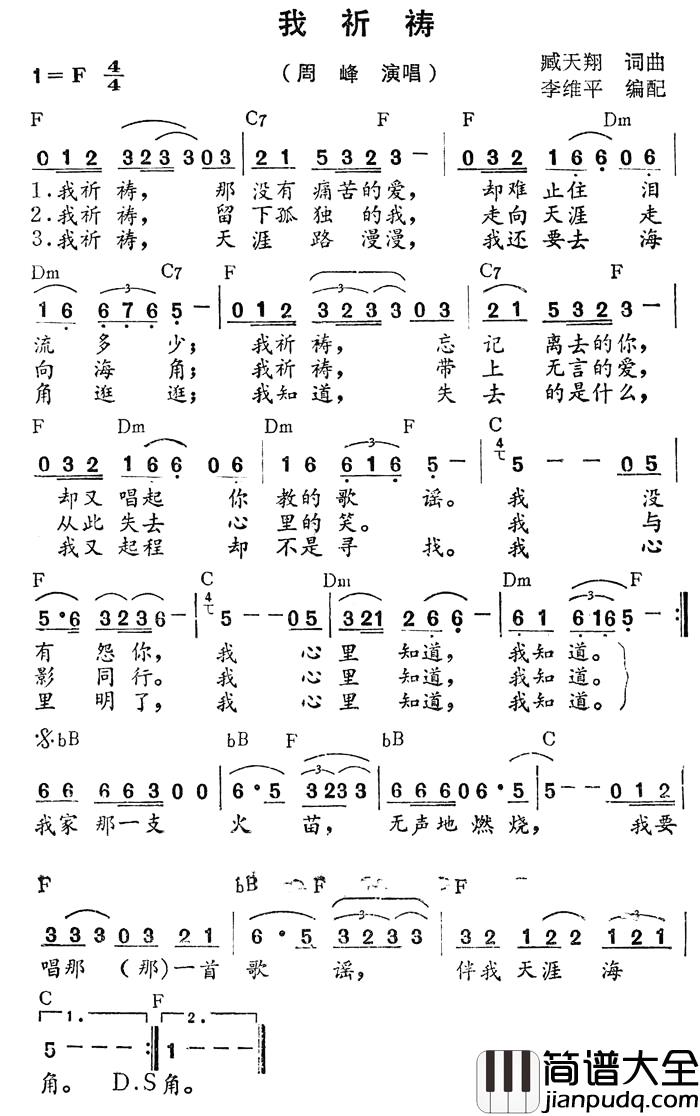 我祈祷
1=F 4/4 （周 峰 演唱） 臧天翔 词曲
李维平 编配
F C7 F F Dm
0 1 2 3 2 3 3 0 3 | 2 1 5 3 2 3 － | 0 3 2 1 6 6 0 6
1.我祈祷， 那没有痛苦的爱， 却难止住 泪
2.我祈祷， 留下孤独的我， 走向天涯 走
3.我祈祷， 天涯路漫漫， 我还要去 海
Dm C7 F C7 F
1 6 6 7 6 5 － | 0 1 2 3 2 3 3 0 3 | 2 1 5 3 2 3 －
流多少； 我祈祷， 忘记离去的你，
向海角； 我祈祷， 带上无言的爱，
角逛逛； 我知道， 失去的是什么，
F Dm Dm F C
0 3 2 1 6 6 0 6 | 1 6 6 1 6 5 － | 4 5 － 0 5
却又唱起 你教的歌谣。 我 没
从此失去 心里的笑。 我 与
我又起程 却不是寻找。 我 心
F C Dm Dm F
5·6 3 2 3 6 － | 4 5 － 0 5 | 3 2 1 2 6 6 － | 6 1 6 1 6 5 － :‖
有怨你， 我 心里知道， 我知道。
影同行。 我 心里知道， 我知道。
里明了， 我 心里知道， 我知道。
bB bB F bB C
6 6 6 6 3 0 0 | 6·5 3 2 3 3 | 6 6 6 0 6·5 | 5 － － 0 1 2
我家那一支 火苗， 无声地燃烧， 我要
F bB F F
3 3 3 0 3 2 1 | 6·5 3 2 3 3 | 3 2 1 2 2 1 2 1
唱那（那)一首 歌谣， 伴我天涯海
C F
1. 2.
5 － － :‖ 1 － － ‖
角。 D.S 角。
简谱大全
jianpudq.com